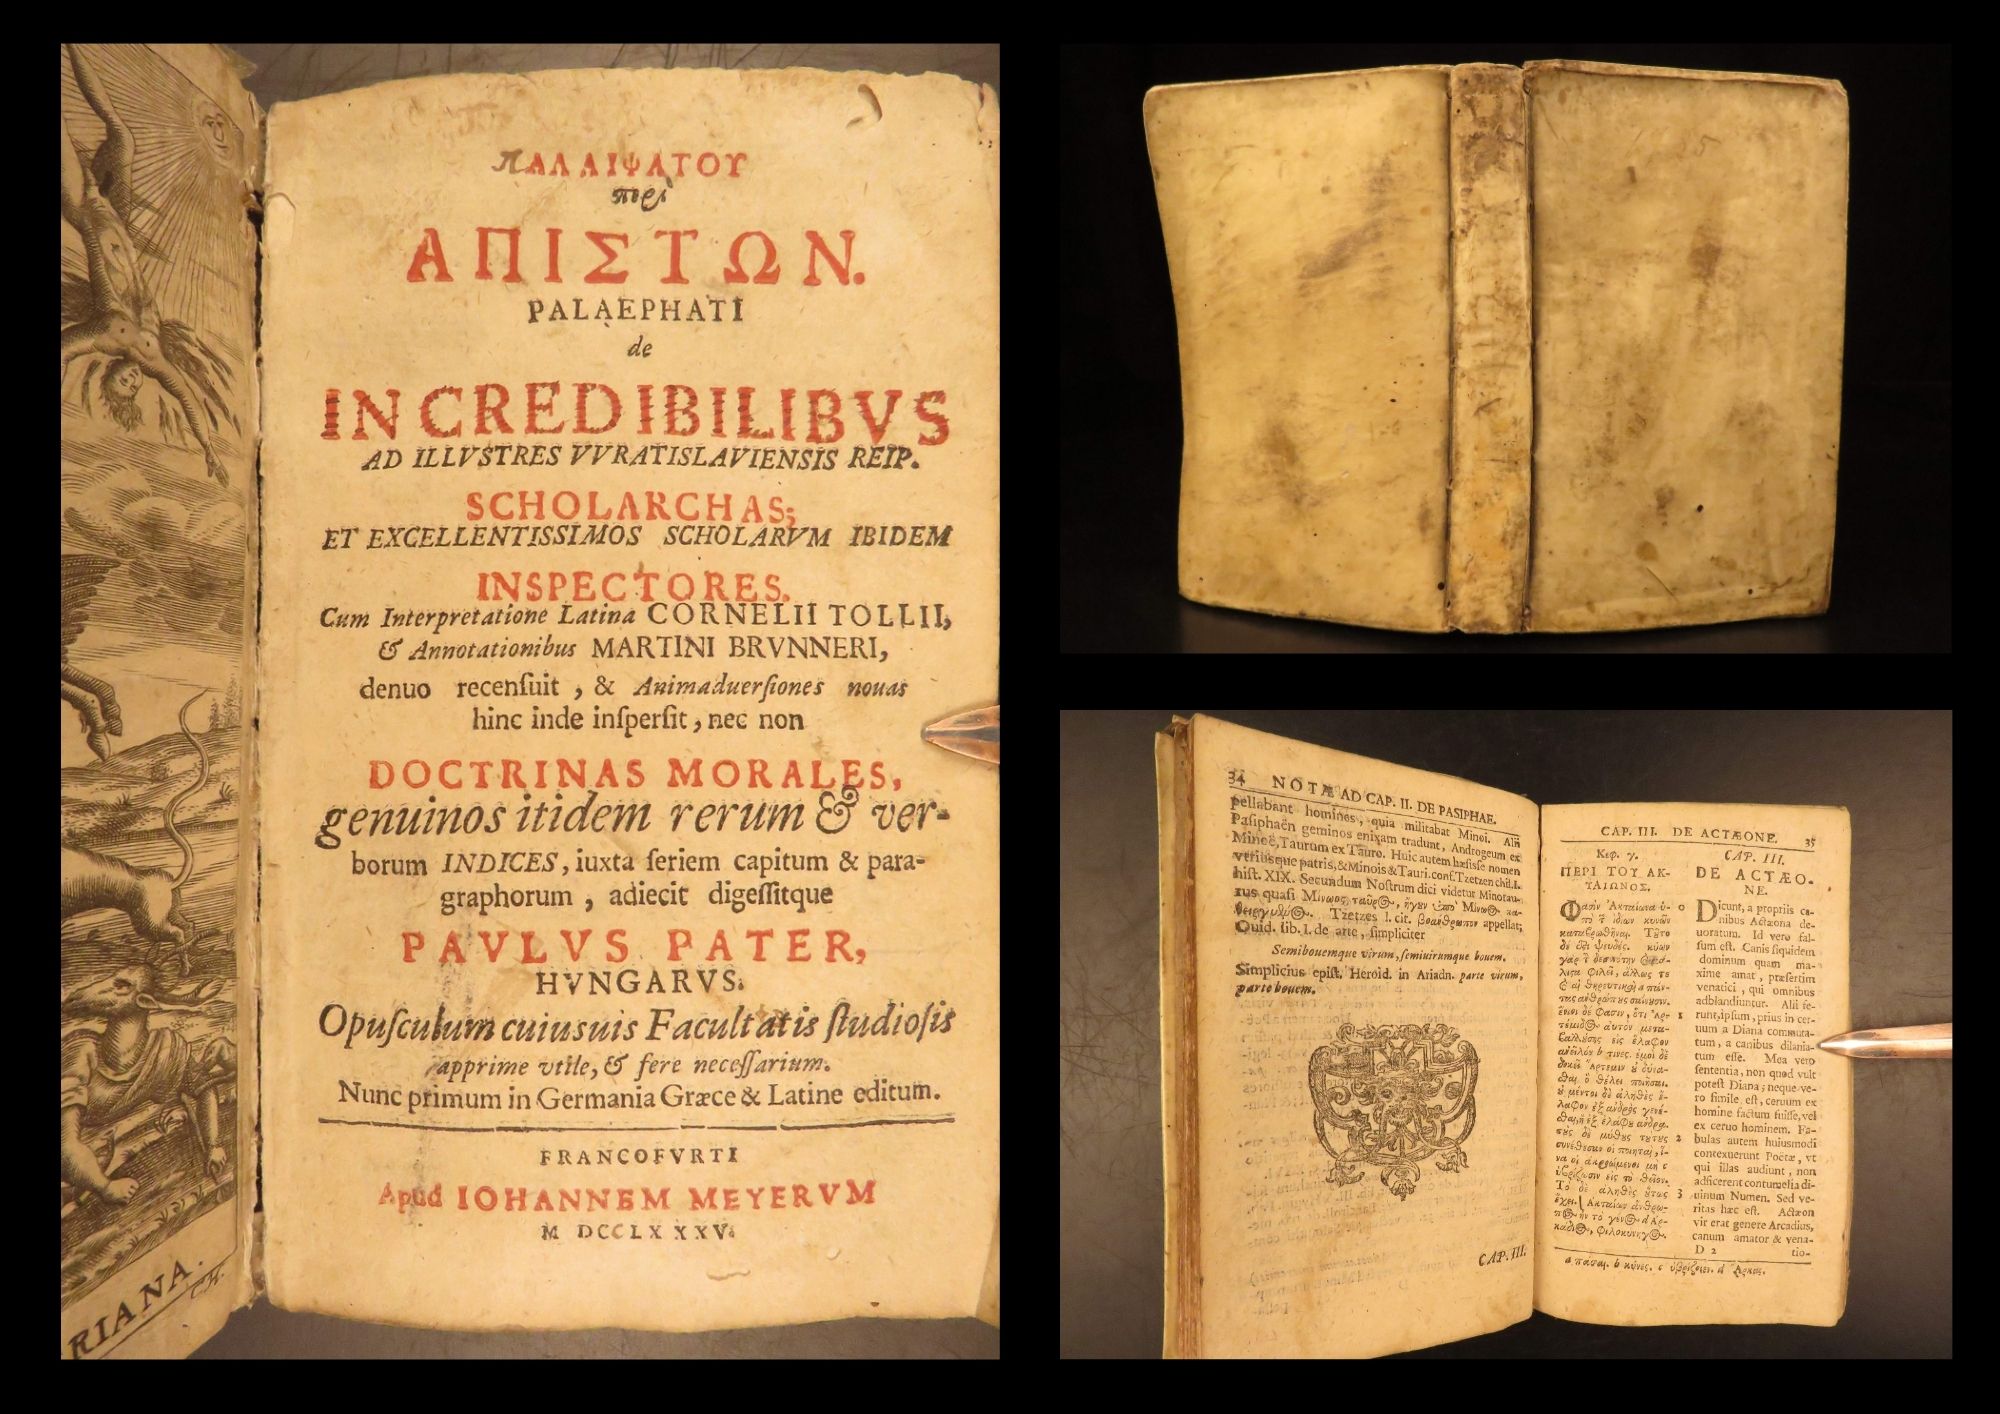 ΠΑΛΑΙΦΑΤΟΥ
περὶ
ΑΠΙΣΤΩΝ.
PALAEPHATI
de
INCREDIBILIBVS
AD ILLVSTRES VVRATISLAVIENSIS REIP.
SCHOLARCHAS;
ET EXCELLENTISSIMOS SCHOLARVM IBIDEM
INSPECTORES.
Cum Interpretatione Latina CORNELII TOLLII,
& Annotationibus MARTINI BRVNNERI,
denuo recenſuit, & Animaduerſiones nouas
hinc inde inſperſit, nec non
DOCTRINAS MORALES,
genuinos itidem rerum & ver-
borum INDICES, iuxta ſeriem capitum & para-
graphorum, adiecit digeſſitque
PAVLVS PATER,
HVNGARVS.
Opuſculum cuiusuis Facultatis ſtudioſis
apprime vtile, & fere neceſſarium.
Nunc primum in Germania Græce & Latine editum.
FRANCOFVRTI
Apud IOHANNEM MEYERVM
M DCCLXXXV.
RIANA.
34 NOTÆ AD CAP. II. DE PASIPHAE.
pellabant homines, quia militabat Minoi. Alii
Paſiphaën geminos enixam tradunt, Androgeum ex
Minoë, Taurum ex Tauro. Huic autem hæſiſſe nomen
vtriusque patris, & Minois & Tauri. conf. Tzetzen chil. I.
hiſt. XIX. Secundum Noſtrum dici videtur Minotau-
rus quaſi Μίνωος ταῦρος, ἤγουν ὑπὸ Μίνωος
Tzetzes l. cit. βοάνθρωπον appellat;
Ouid. lib. I. de arte, ſimpliciter
Semibouemque virum, ſemiuirumque bouem.
Simplicius epiſt. Heroid. in Ariadn. parte virum,
parte bouem.
CAP. III.
CAP. III. DE ACTÆONE. 35
Κεφ. γ.
ΠΕΡΙ ΤΟΥ ΑΚ-
ΤΑΙΩΝΟΣ.
Φασὶν Ἀκταίωνα ὑ-
πὸ τ ἰδίων κυνῶν
καταβρωθῆναι. Τοῦτο
δέ ἐςι ψευδές. κύων
γὰρ τ δεσπότην
λιςα φιλεῖ, ἄλλως τε
CAP. III.
DE ACTÆO-
NE.
Dicunt, a propriis ca-
nibus Actæona de-
uoratum. Id vero fal-
ſum eſt. Canis ſiquidem
dominum quam ma-
xime amat, præſertim
venatici, qui omnibus
adblandiuntur. Alii fe-
runt, ipſum, prius in cer-
uum a Diana commuta-
tum, a canibus dilania-
tum eſſe. Mea vero
ſententia, non quod vult
poteſt Diana; neque ve-
ro ſimile eſt, ceruum ex
homine factum fuiſſe, vel
ex ceruo hominem. Fa-
bulas autem huiusmodi
contexuerunt Poëtæ, vt
qui illas audiunt, non
adficerent contumelia di-
uinum Numen. Sed ve-
ritas hæc eſt. Actæon
vir erat genere Arcadius,
canum amator & vena-
D 2 tio-